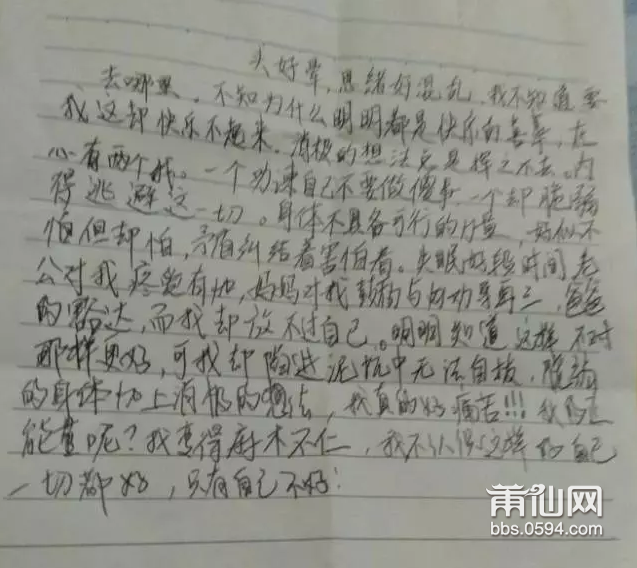 头好晕,思绪好混乱,我不知道要
去哪里。不知为什么明明都是快乐的喜事,在
我这却快乐不起来,消极的想法总是挥之不去。内
心有两个我。一个劝诫自己不要做傻事一个却脆弱
得逃避这一切。身体不具备可行的力量,看似不
怕但却怕,矛盾纠结着害怕着。失眠好段时间,老
公对我疼爱有加,妈妈对我鼓励与劝导再三,爸爸
的豁达,而我却放不过自己。明明知道这样不对
那样更好,可我却陷进泥坑中无法自拔,脆弱
的身体加上消极的想法,我真的好痛苦!!!我的正
能量呢?我变得麻木不仁,我不认得这样的自己
一切都好,只有自己不好!
莆仙网
bbs.0594.com